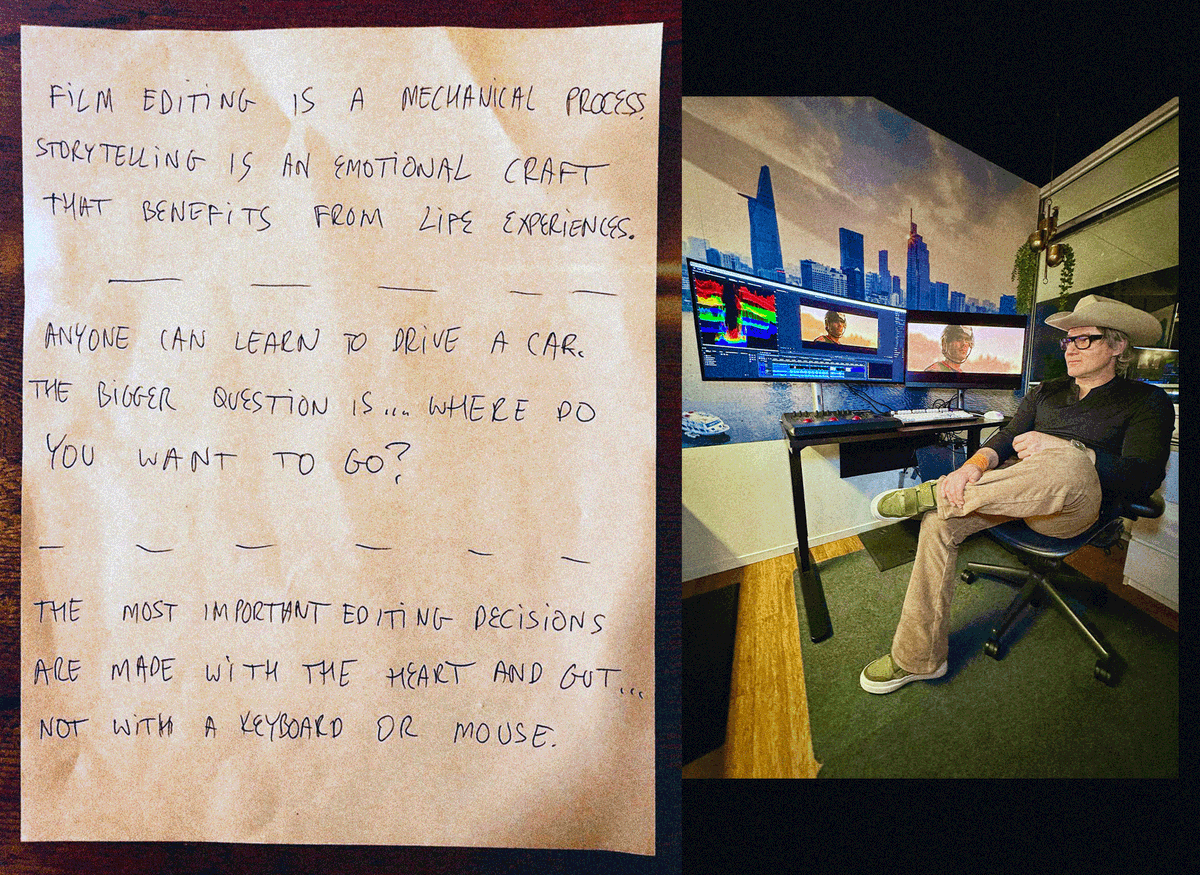 FILM EDITING IS A MECHANICAL PROCESS.
STORYTELLING IS AN EMOTIONAL CRAFT
THAT BENEFITS FROM LIFE EXPERIENCES.
ANYONE CAN LEARN TO DRIVE A CAR.
THE BIGGER QUESTION IS... WHERE DO
YOU WANT TO GO?
THE MOST IMPORTANT EDITING DECISIONS
ARE MADE WITH THE HEART AND GUT...
NOT WITH A KEYBOARD OR MOUSE.